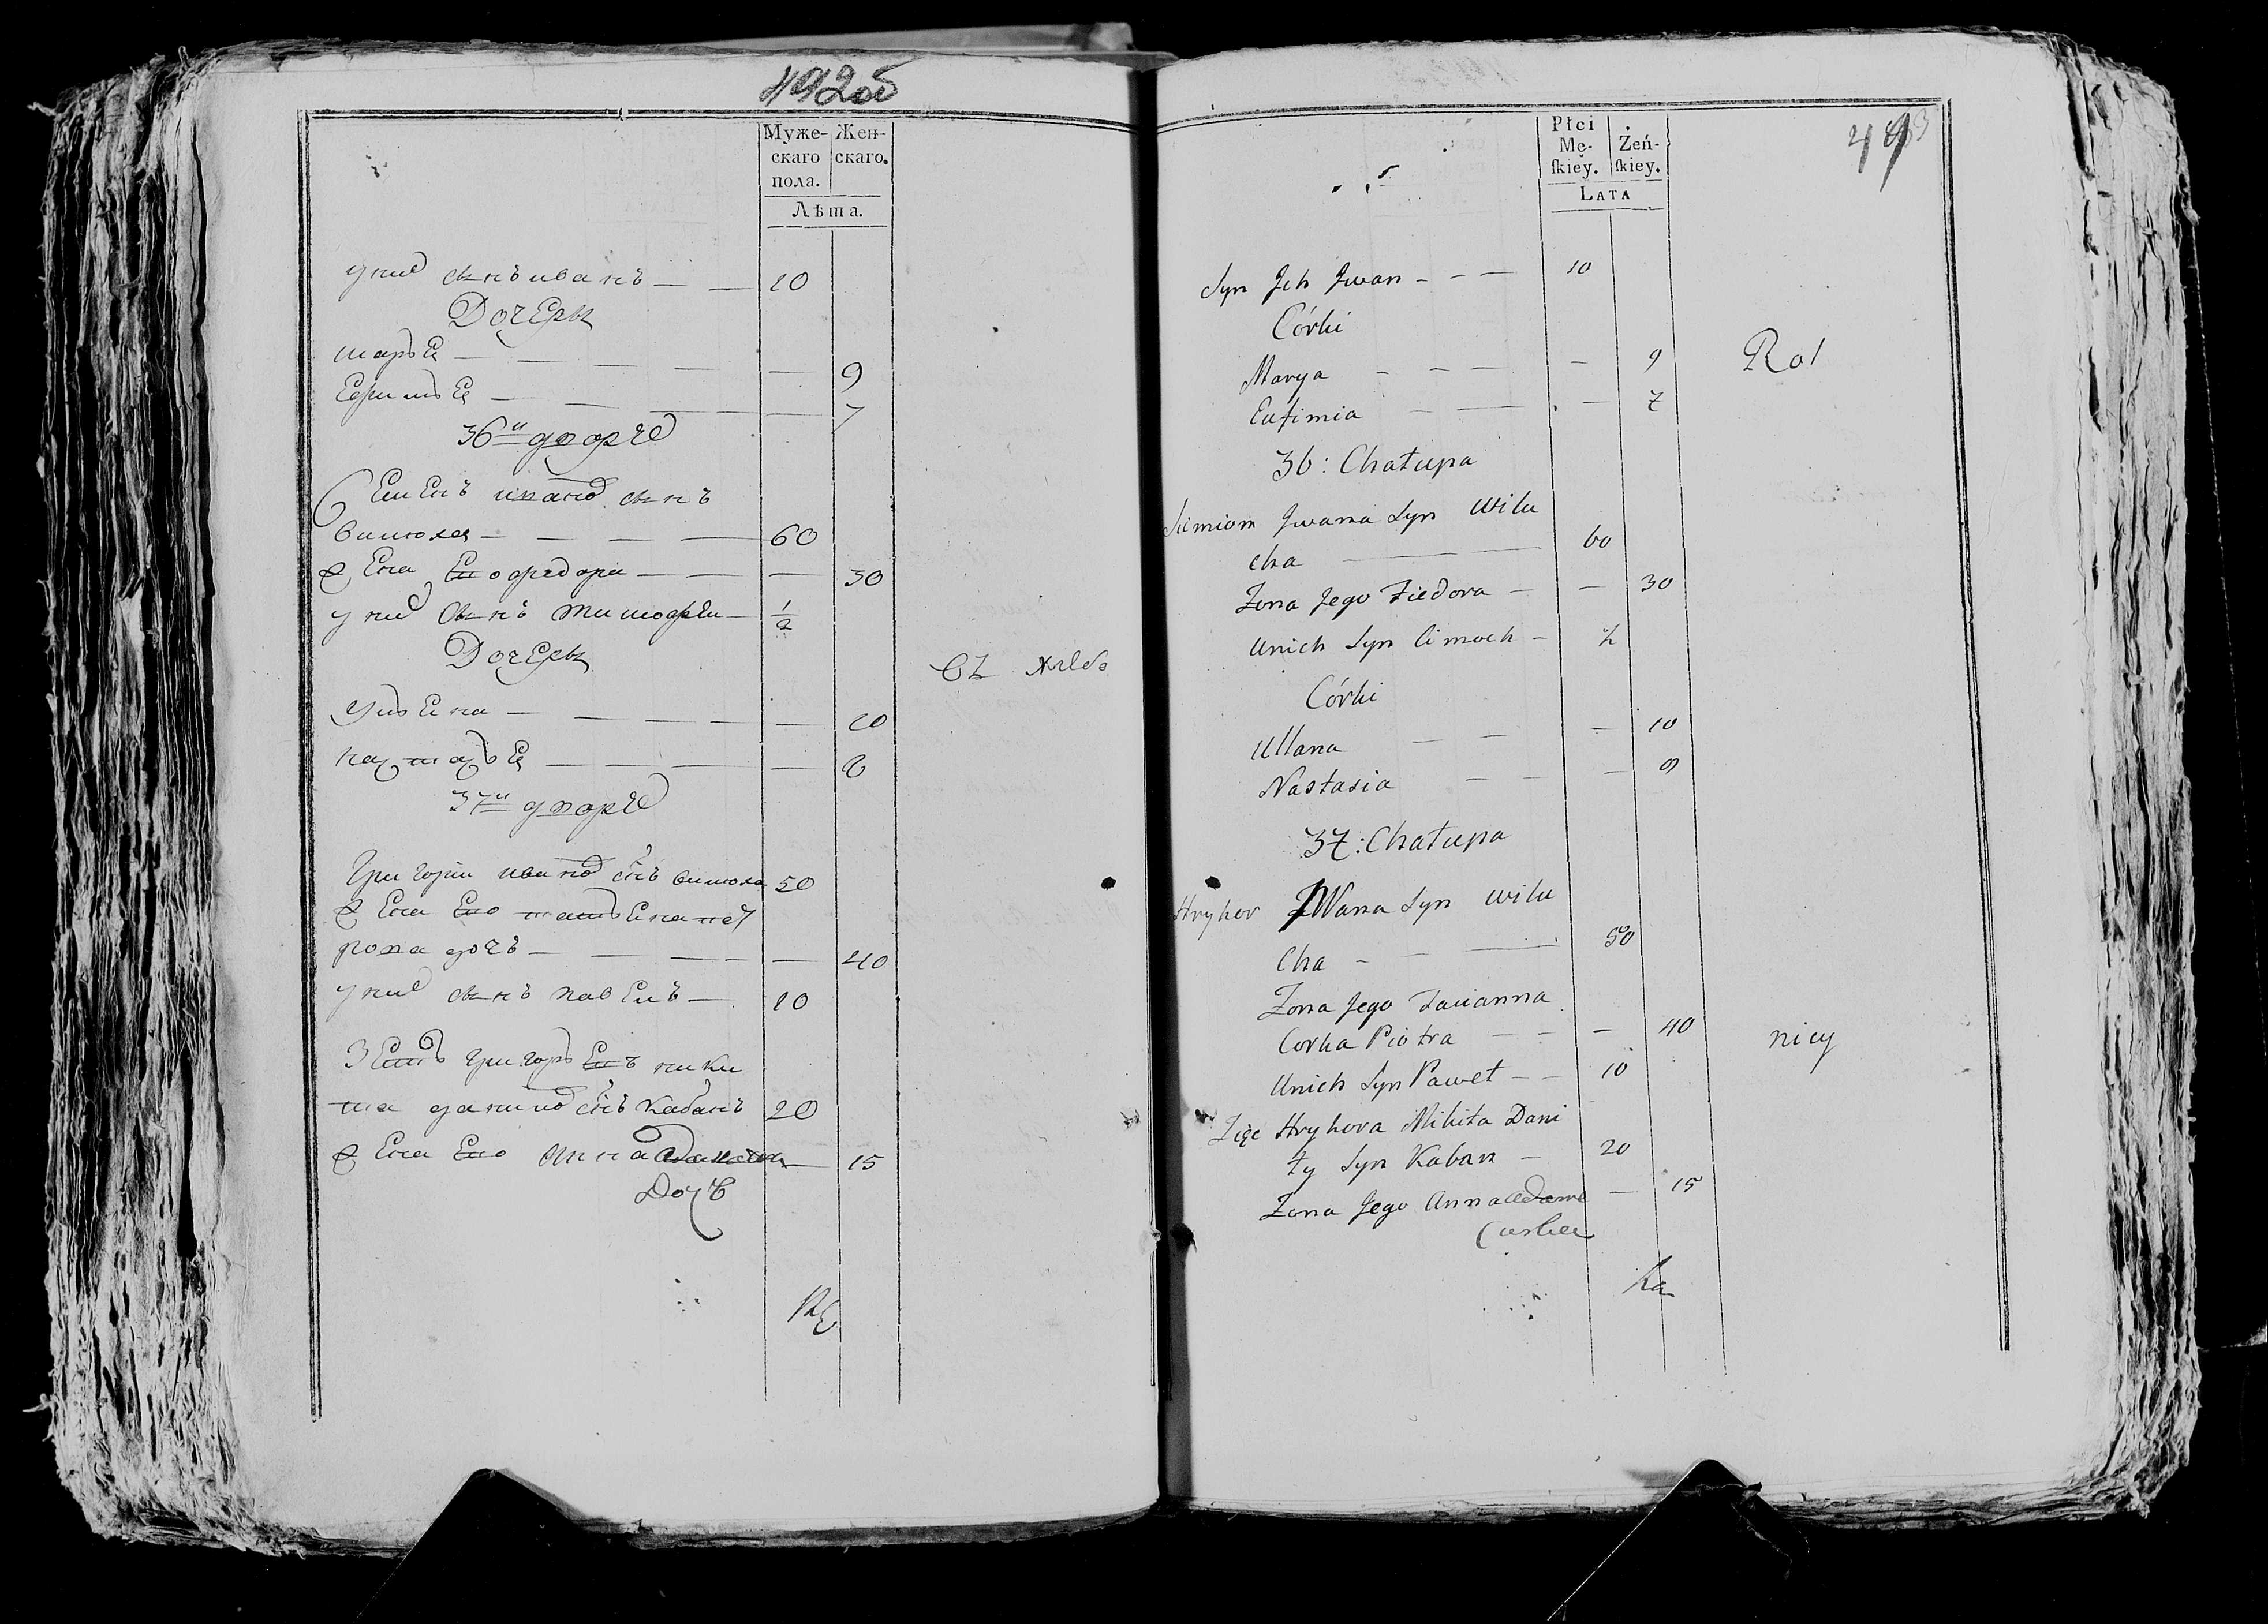 492об
Муже- Жен-
скаго скаго.
пола.
Лѣта.
у них сынъ иванъ — — 10
Дочеры
маръя — — — — — 9
Ефимъя — — — — 7
36й дворъ
Семенъ иванов сынъ
вилюха — — — — 60
Жена Его федора — — — — 30
у них сынъ тимофей — 1/2
Дочеры
Ульяна — — — — — 10
настасъя — — — — — 8
37й дворъ
Григорий иванов снъ вилюха 50
Жена Его татьяна пет
рова дочь — — — — — 40
у них сынъ павелъ — 10
Зять григоръевъ ники
та данилов снъ Кабанъ 20
Жена Его анна — 15
Дочь
Съ хлебо
Płci
Mę- Żeń-
ſkiey. ſkiey.
LATA
Syn Ich Jwan — — — 10
Córki
Marya — — — — 9
Eufimia — — — 7
36: Chałupa
Siemion Jwana Syn Wilu
cha — — 60
Zona Jego Fiedora — — 30
Unich Syn Cimoch — ½
Córki
Ullana — — — 10
Nastasia — — — 8
37: Chałupa
Hryhor JWana Syn wilu
Cha — — — 50
Zona Jego Tacianna
Corka Piotra — — — 40
Unich Syn Paweł — — 10
Zięc Hryhora Mikita Dani
ły Syn Kaban — 20
Zona Jego Anna — 15
Corka
Rol
nicy